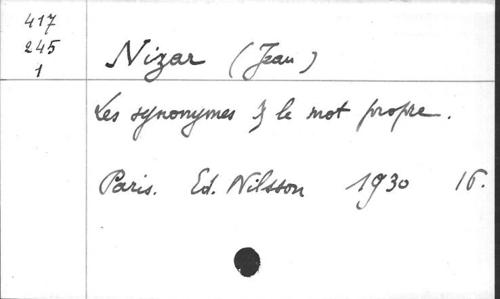 417
245
1
Nizar (Jean)
Les synonymes & le mot propre.
Paris. Ed. Nilsson 1930 16.